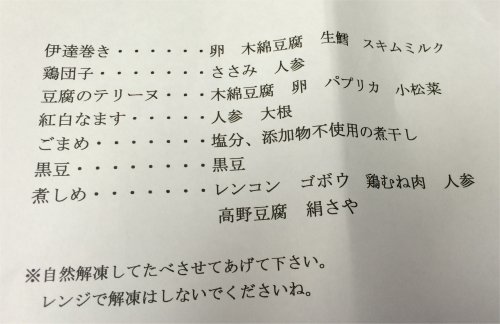 伊達巻き・・・・・・・卵　木綿豆腐　生鱈　スキムミルク
鶏団子・・・・・・・・ささみ　人参
豆腐のテリーヌ・・・木綿豆腐　卵　パプリカ　小松菜
紅白なます・・・・・人参　大根
ごまめ・・・・・・・・塩分、添加物不使用の煮干し
黒豆・・・・・・・・・黒豆
煮しめ・・・・・・・・レンコン　ゴボウ　鶏むね肉　人参
高野豆腐　絹さや
※自然解凍してたべさせてあげて下さい。
レンジで解凍はしないでくださいね。